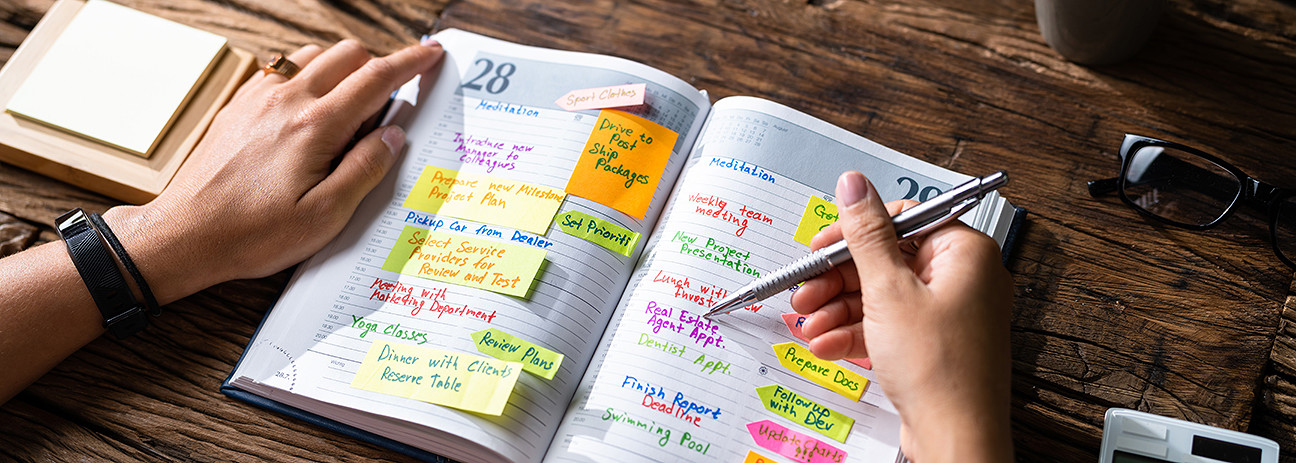 28
Meditation
Sport Clothes
Drive to
Post
Ship
Packages
Introduce new
Manager to
Colleagues
Prepare new Milestone
Project Plan
Set Prioriti
Pickup Car from Dealer
Select Service
Providers for
Review and Test
Meeting with
Marketing Department
Yoga Classes
Review Plans
Dinner with Clients
Reserve Table
August
Meditation
Weekly team
meeting
New Project
Presentation
Lunch with
Real Estate
Agent Appt.
Dentist Appt.
Prepare Docs
Finish Report
Deadline
Follow up
with Dev
Swimming Pool
Update Charts